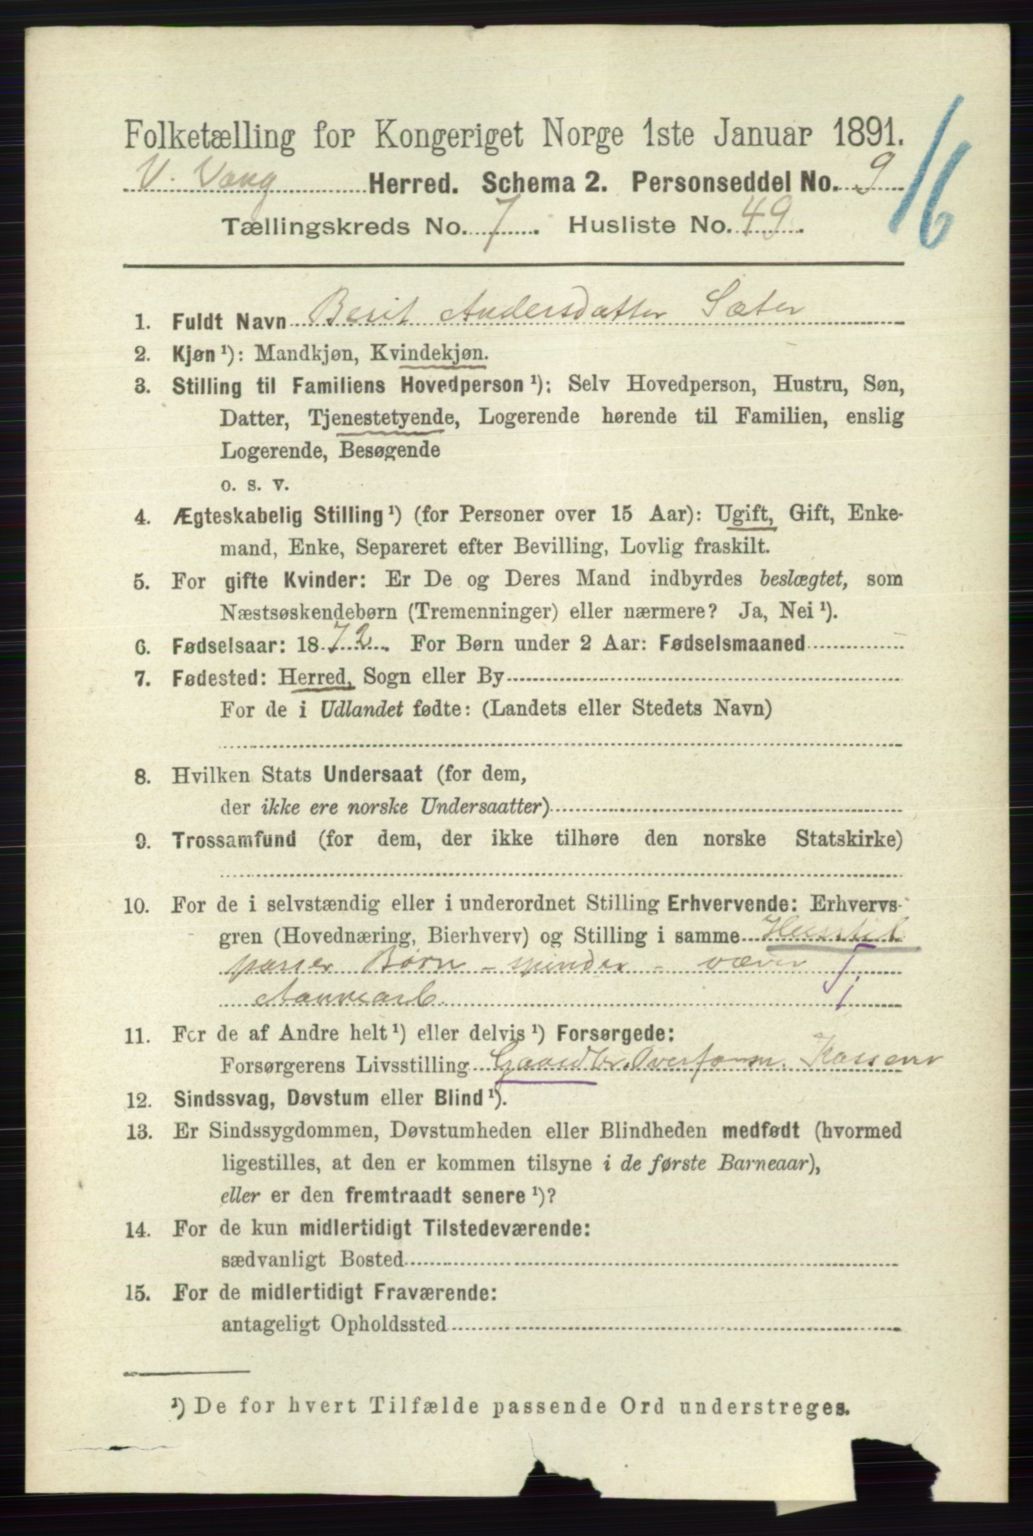 Folketælling for Kongeriget Norge 1ste Januar 1891.
V. Vang Herred. Schema 2. Personseddel No. 9
16
Tællingskreds No. 7. Husliste No. 49.
1. Fuldt Navn Berit Andersdatter Sæter
2. Kjøn ¹): Mandkjøn, Kvindekjøn.
3. Stilling til Familiens Hovedperson ¹): Selv Hovedperson, Hustru, Søn,
Datter, Tjenestetyende, Logerende hørende til Familien, enslig
Logerende, Besøgende
o. s. v.
4. Ægteskabelig Stilling ¹) (for Personer over 15 Aar): Ugift, Gift, Enke-
mand, Enke, Separeret efter Bevilling, Lovlig fraskilt.
5. For gifte Kvinder: Er De og Deres Mand indbyrdes beslægtet, som
Næstsøskendebørn (Tremenninger) eller nærmere? Ja, Nei ¹).
6. Fødselsaar: 1872. For Børn under 2 Aar: Fødselsmaaned
7. Fødested: Herred, Sogn eller By
For de i Udlandet fødte: (Landets eller Stedets Navn)
8. Hvilken Stats Undersaat (for dem,
der ikke ere norske Undersaatter)
9. Trossamfund (for dem, der ikke tilhøre den norske Statskirke)
10. For de i selvstændig eller i underordnet Stilling Erhvervende: Erhvervs-
gren (Hovednæring, Bierhverv) og Stilling i samme Husstel
passer Børn - spinder - væver
11. For de af Andre helt ¹) eller delvis ¹) Forsørgede:
Forsørgerens Livsstilling Gaardbr. Overform. Kasserer
12. Sindssvag, Døvstum eller Blind ¹).
13. Er Sindssygdommen, Døvstumheden eller Blindheden medfødt (hvormed
ligestilles, at den er kommen tilsyne i de første Barneaar),
eller er den fremtraadt senere ¹)?
14. For de kun midlertidigt Tilstedeværende:
sædvanligt Bosted
15. For de midlertidigt Fraværende:
antageligt Opholdssted
¹) De for hvert Tilfælde passende Ord understreges.